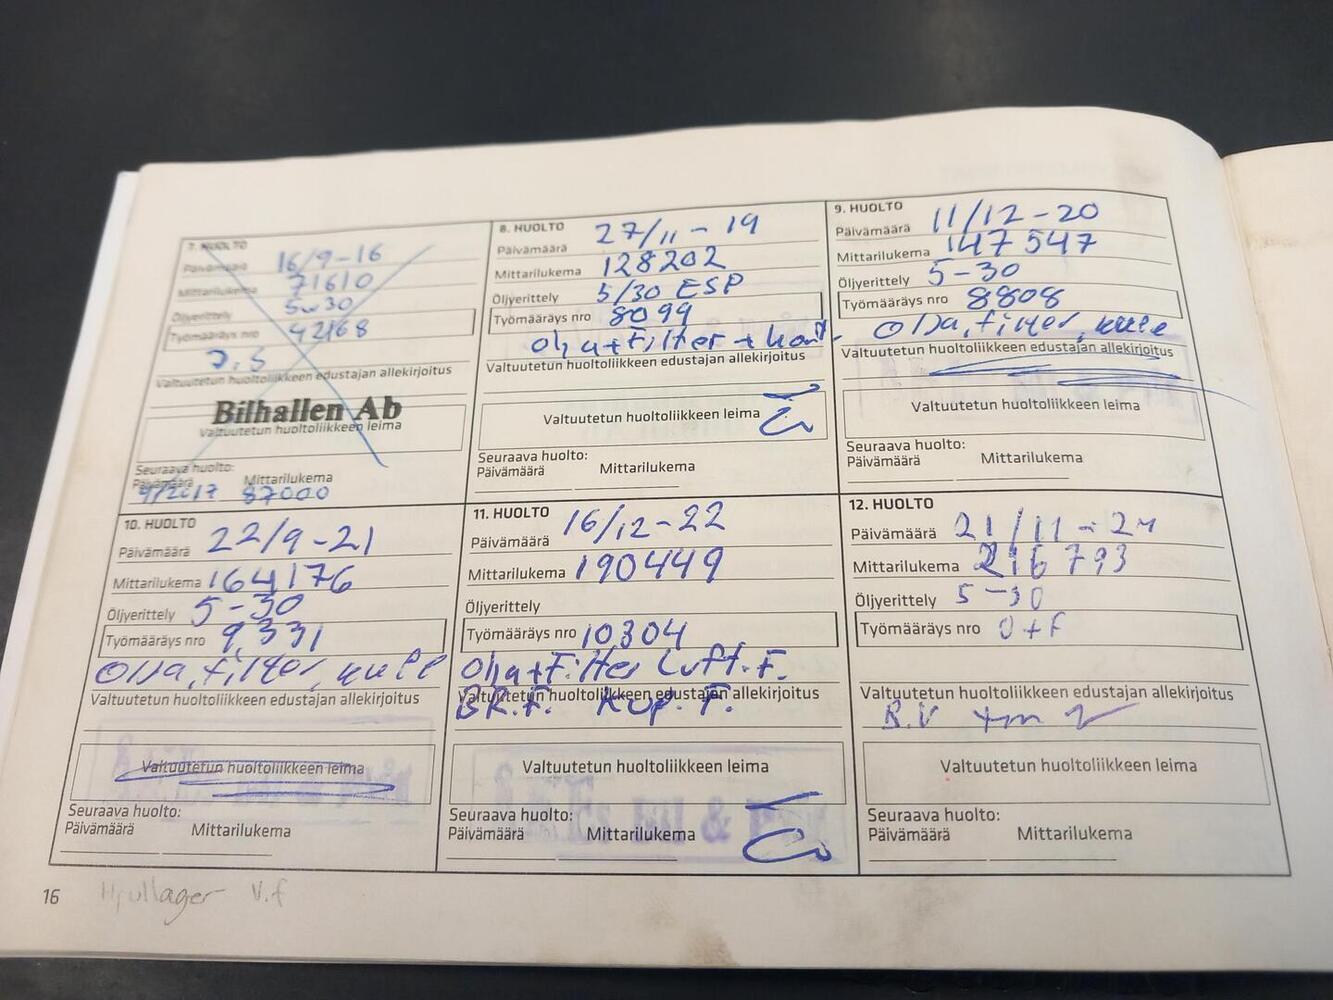 7. HUOLTO
Päivämäärä 16/9-16
Mittarilukema 71610
Öljyerittely 5w30
Työmääräys nro 42168
J.S
Valtuutetun huoltoliikkeen edustajan allekirjoitus
Bilhallen Ab
Valtuutetun huoltoliikkeen leima
Seuraava huolto:
Päivämäärä Mittarilukema
9/2017 87000
8. HUOLTO
Päivämäärä 27/11-19
Mittarilukema 128202
Öljyerittely 5/30 ESP
Työmääräys nro 8099
Olja+Filter +
Valtuutetun huoltoliikkeen edustajan allekirjoitus
Valtuutetun huoltoliikkeen leima
Seuraava huolto:
Päivämäärä Mittarilukema
9. HUOLTO
Päivämäärä 11/12-20
Mittarilukema 147547
Öljyerittely 5-30
Työmääräys nro 8808
Olja, filter,
Valtuutetun huoltoliikkeen edustajan allekirjoitus
Valtuutetun huoltoliikkeen leima
Seuraava huolto:
Päivämäärä Mittarilukema
10. HUOLTO
Päivämäärä 22/9-21
Mittarilukema 164176
Öljyerittely 5-30
Työmääräys nro 9331
Olja, filter,
Valtuutetun huoltoliikkeen edustajan allekirjoitus
Valtuutetun huoltoliikkeen leima
Seuraava huolto:
Päivämäärä Mittarilukema
11. HUOLTO
Päivämäärä 16/12-22
Mittarilukema 190449
Öljyerittely
Työmääräys nro 10304
Olja+Filter Luft.F.
Valtuutetun huoltoliikkeen edustajan allekirjoitus
BR.F. Kup. F.
Valtuutetun huoltoliikkeen leima
Seuraava huolto:
Päivämäärä Mittarilukema
12. HUOLTO
Päivämäärä 21/11-24
Mittarilukema 216793
Öljyerittely 5-30
Työmääräys nro O+F
Valtuutetun huoltoliikkeen edustajan allekirjoitus
B.V
Valtuutetun huoltoliikkeen leima
Seuraava huolto:
Päivämäärä Mittarilukema
16 Hjullager V.f